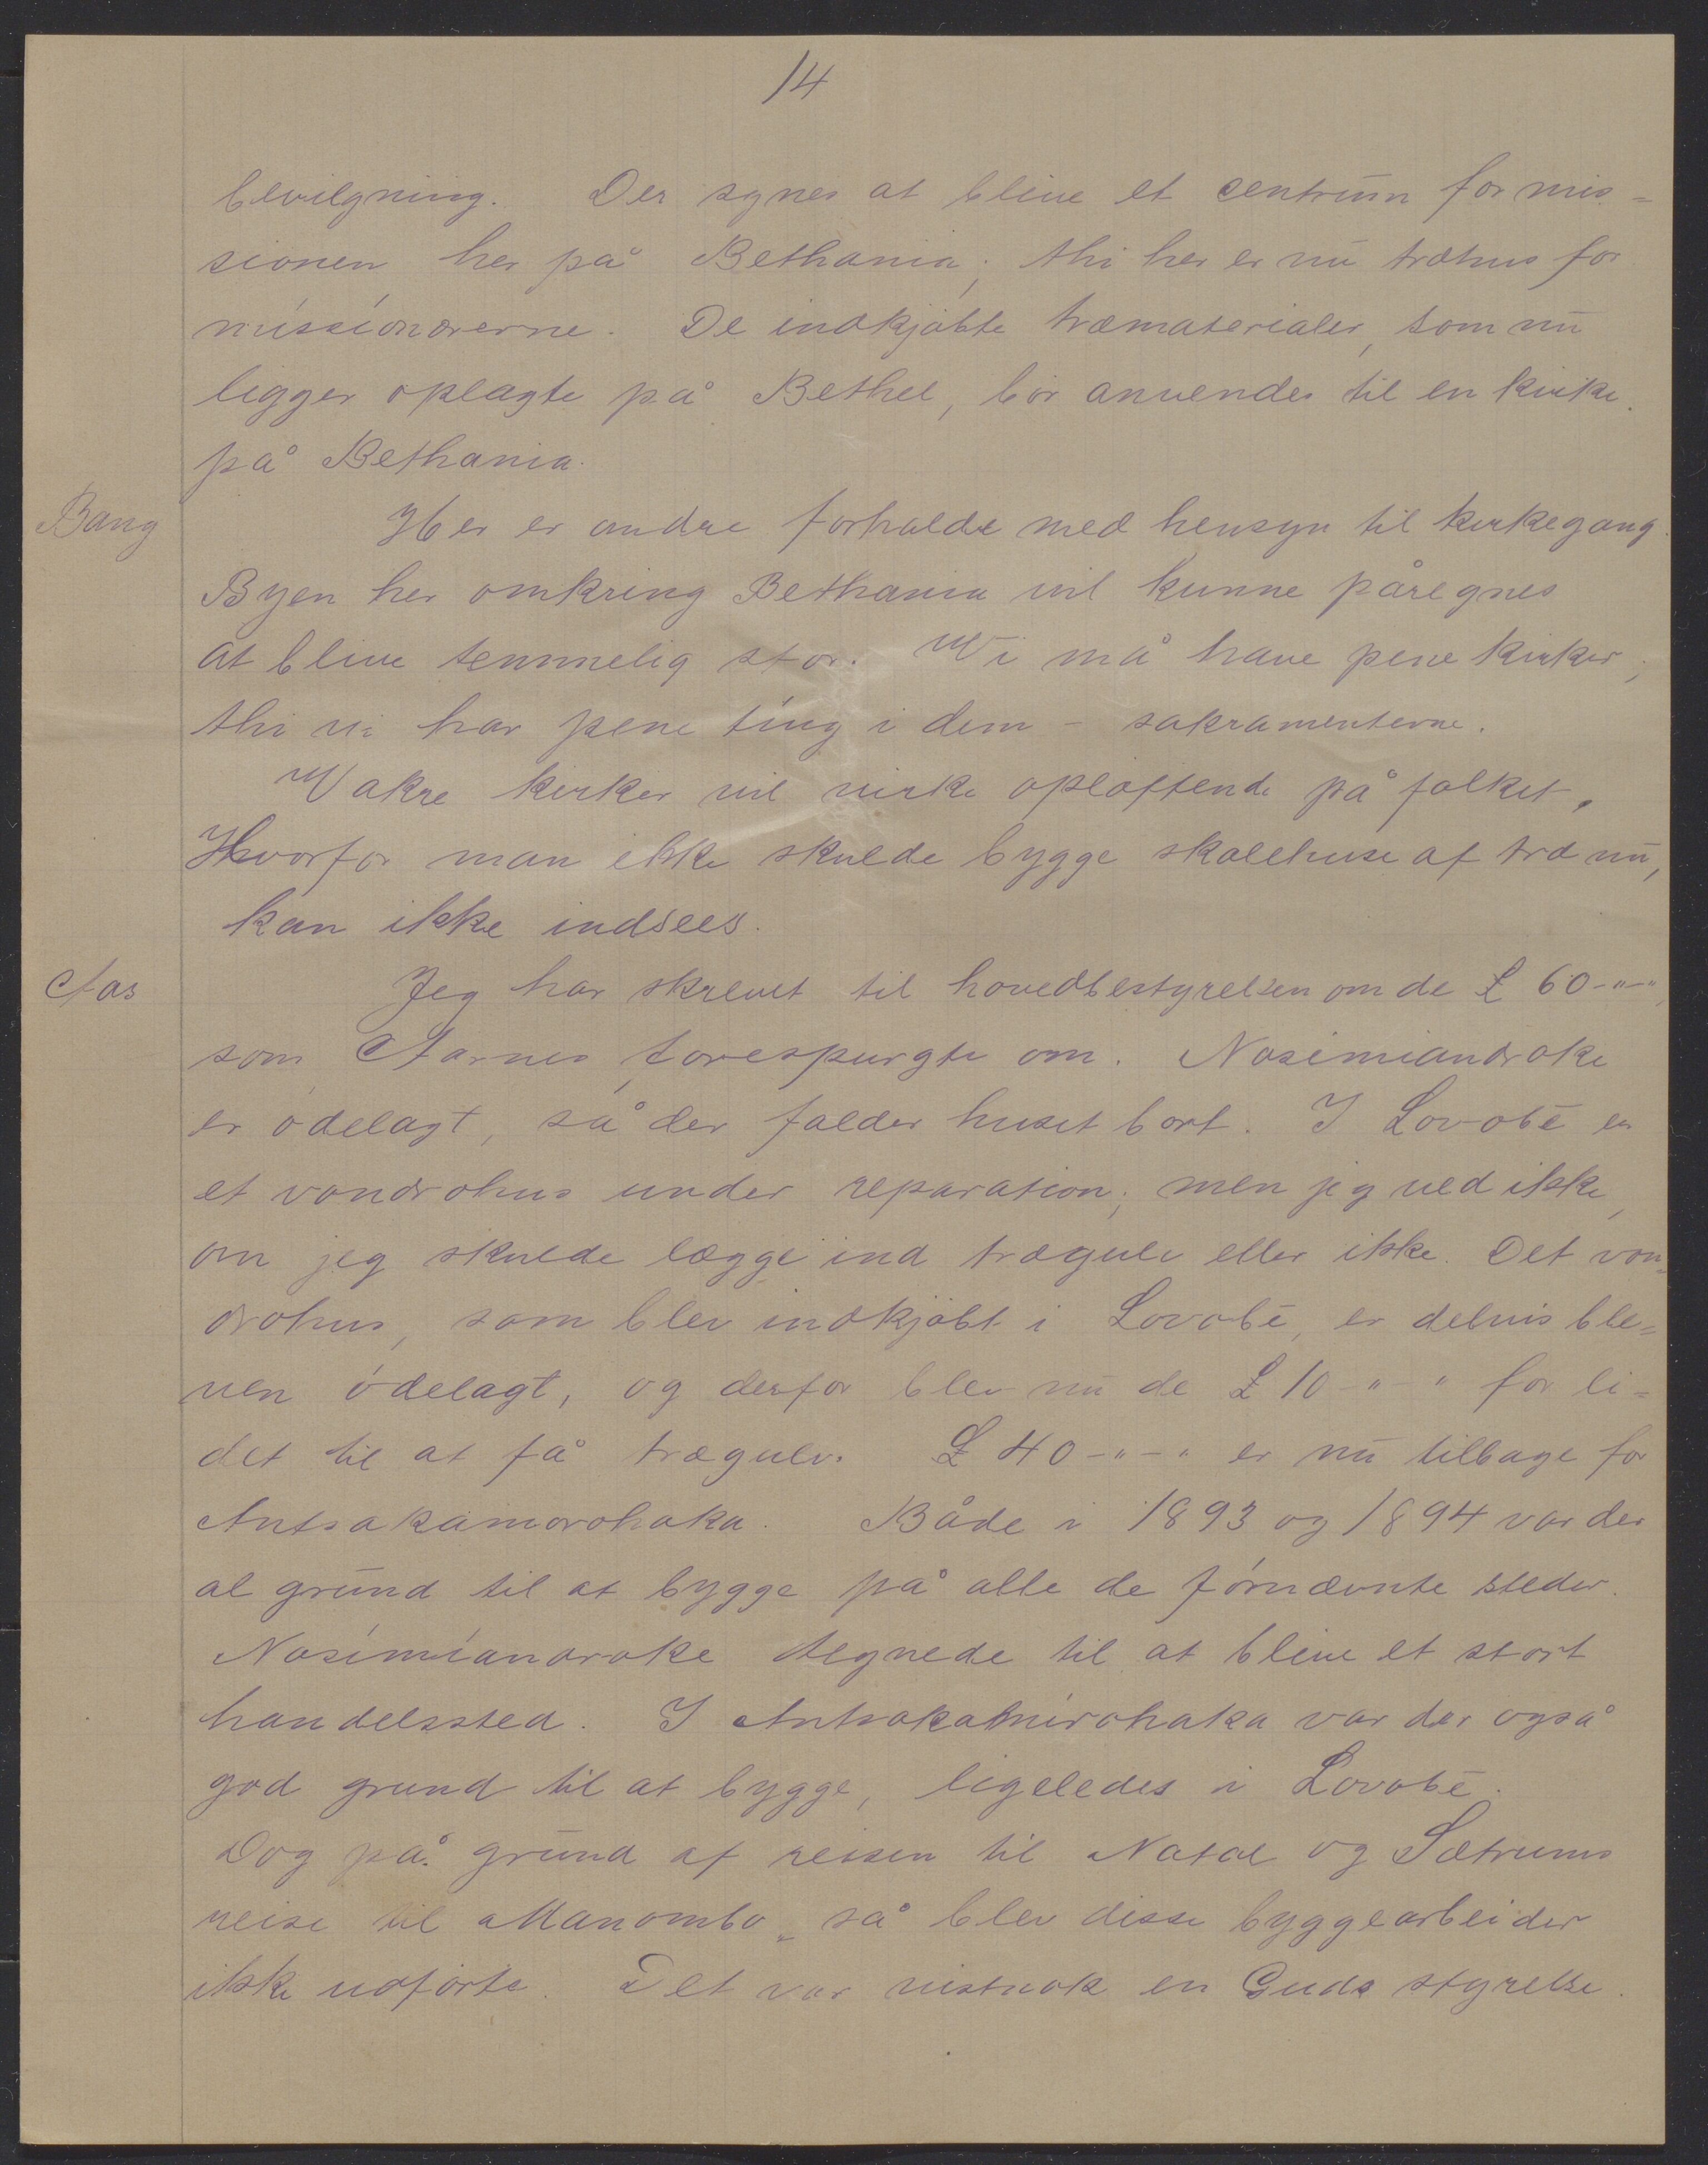 14
bevilgning. Der synes at blive et centrum for mis=
sionen her på Bethania; thi her er nu træhus for
missionærerne. De indkjøbte træmaterialer, som nu
ligger oplagte på Bethel, bør anvendes til en kirke
på Bethania.
Bang Her er andre forholde med hensyn til kirkegang.
Byen her omkring Bethania vil kunne påregnes
at blive temmelig stor. Wi må have pene kirker,
thi vi har pene ting i dem - sakramenterne.
Wakre kirker vil virke opløftende på folket,
Hvorfor man ikke skulde bygge skolehuse af træ nu,
kan ikke indsees.
Aas Jeg har skrevet til hovedbestyrelsen om de £ 60-"-",
som Aarnes forespurgte om. Nosimiandroke
er ødelagt, så der falder huset bort. I Lovobé er
et vondrohus under reparation; men jeg ved ikke,
om jeg skulde lægge ind trægulv eller ikke. Det von=
drohus, som blev indkjøbt i Lovobé, er delvis ble=
ven ødelagt, og derfor blev nu de £ 10-"-" for li=
det til at få trægulv. £ 40-"-" er nu tilbage for
Antsakamorohaka. Både i 1893 og 1894 var der
al grund til at bygge på alle de førnævnte steder.
Nosimiandroke tegnede til at blive et stort
handelssted. I Antsakamirohaka var der også
god grund til at bygge, ligeledes i Lovobé.
Dog på grund af reisen til Natal og Sætrums
reise til Manombo, så blev disse byggearbeider
ikke udførte. Det var vistnok en Guds styrelse.